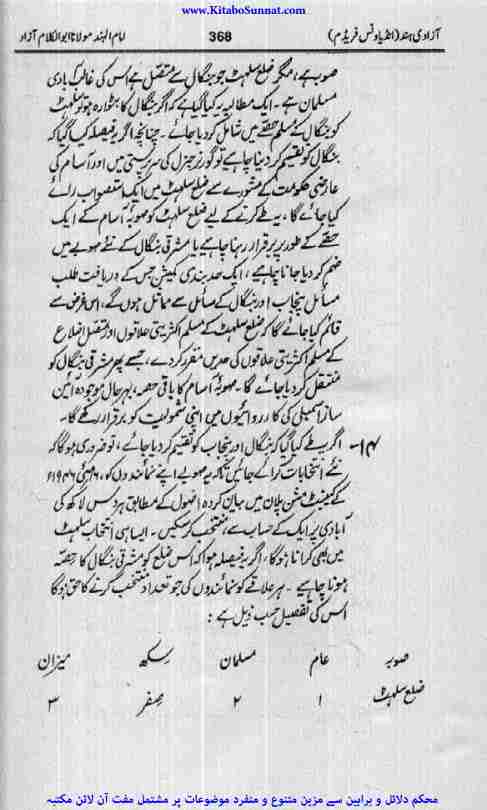 www.KitaboSunnat.com
آزادی ہند (انڈیا ونس فریڈم) 368 امام الہند مولانا ابوالکلام آزاد
صوبہ ہے، مگر ضلع سلہٹ جو بنگال سے متصل ہے اس کی غالب آبادی
مسلمان ہے۔ ایک مطالبہ یہ کیا گیا ہے کہ اگر بنگال کا بٹوارہ ہو تو سلہٹ
کو بنگال کے مسلم حصّے میں شامل کر دیا جائے۔ چنانچہ اگر یہ فیصلہ کیا گیا کہ
بنگال کو تقسیم کر دینا چاہیے تو گورنر جنرل کی سرپرستی میں اور آسام کی
عارضی حکومت کے مشورے سے ضلع سلہٹ میں ایک استصواب رائے
کیا جائے گا، یہ طے کرنے کے لیے ضلع سلہٹ کو صوبۂ آسام کے ایک
حصّے کے طور پر برقرار رہنا چاہیے یا مشرقی بنگال کے نئے صوبے میں
ضم کر دیا جانا چاہیے، ایک حد بندی کمیشن جس کے دریافت طلب
مسائل پنجاب اور بنگال کے مسائل سے مماثل ہوں گے، اس غرض سے
قائم کیا جائے گا کہ ضلع سلہٹ کے مسلم اکثریتی علاقوں اور متصل اضلاع
کے مسلم اکثریتی علاقوں کی حدیں مقرر کر دے، جسے پھر مشرقی بنگال کو
منتقل کر دیا جائے گا۔ صوبۂ آسام کا باقی حصہ، بہرحال موجودہ آئین
ساز اسمبلی کی کارروائیوں میں اپنی شمولیت کو برقرار رکھے گا۔
۱۴۔ اگر یہ طے کیا گیا کہ بنگال اور پنجاب کو تقسیم کر دیا جائے، تو ضروری ہوگا کہ
نئے انتخابات کرائے جائیں تاکہ یہ صوبے اپنے نمائندوں کو، ۱۶ مئی ۱۹۴۶ء
کے کیبینٹ مشن پلان میں بیان کردہ اصولوں کے مطابق ہر دس لاکھ کی
آبادی پر ایک کے حساب سے، منتخب کر سکیں۔ ایسا ہی انتخاب سلہٹ
میں بھی کرانا ہوگا، اگر یہ فیصلہ ہوا کہ اس ضلع کو مشرقی بنگال کا حصّہ
ہونا چاہیے۔ ہر علاقے کو نمائندوں کی جو تعداد منتخب کرنے کا حق ہوگا
اس کی تفصیل حسب ذیل ہے:
صوبہ عام مسلمان سکھ میزان
ضلع سلہٹ ۱ ۲ صفر ۳
محکم دلائل و براہین سے مزین متنوع و منفرد موضوعات پر مشتمل مفت آن لائن مکتبہ